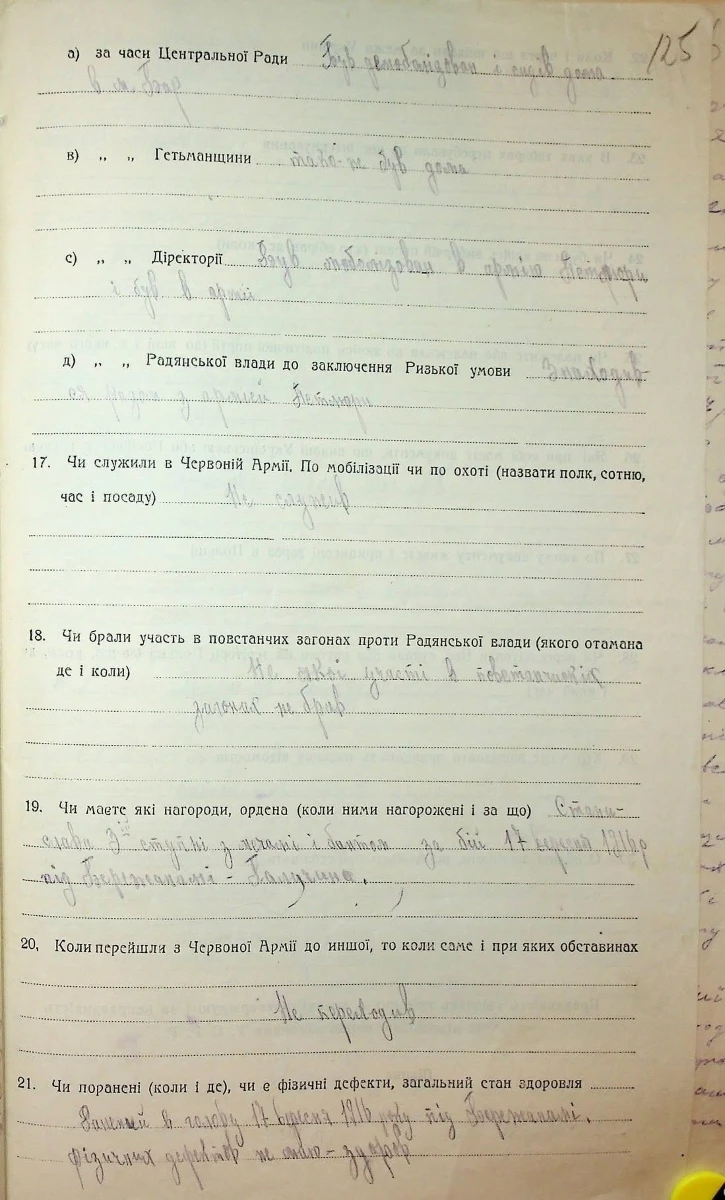 125
а) за часи Центральної Ради Був демобилізован і сидів дома
в м. Бар
в) „ „ Гетьманщини тако-же був дома
с) „ „ Діректорії Був мобілізован в армію Петлюри
і був в армії
д) „ „ Радянської влади до заключення Ризької умови Знаходив-
ся разом з армієй Петлюри
17. Чи служили в Червоній Армії. По мобілізації чи по охоті (назвати полк, сотню,
час і посаду) Не служив
18. Чи брали участь в повстанчих загонах проти Радянської влади (якого отамана
де і коли) Не якої участі в повстанчиских
загонах не брав
19. Чи маєте які нагороди, ордена (коли ними нагорожені і за що) Стані-
слава 3ій ступні з мечамі і бантом за бій 17 вересня 1916 р
під Бережанамі - Галичина.
20, Коли перейшли з Червоної Армії до иншої, то коли саме і при яких обставинах
Не переходив
21. Чи поранені (коли і де), чи є фізичні дефекти, загальний стан здоровля
Ранений в голову 17 вересня 1916 року під Бережанамі.
фізичних дефектів не маю - здоров